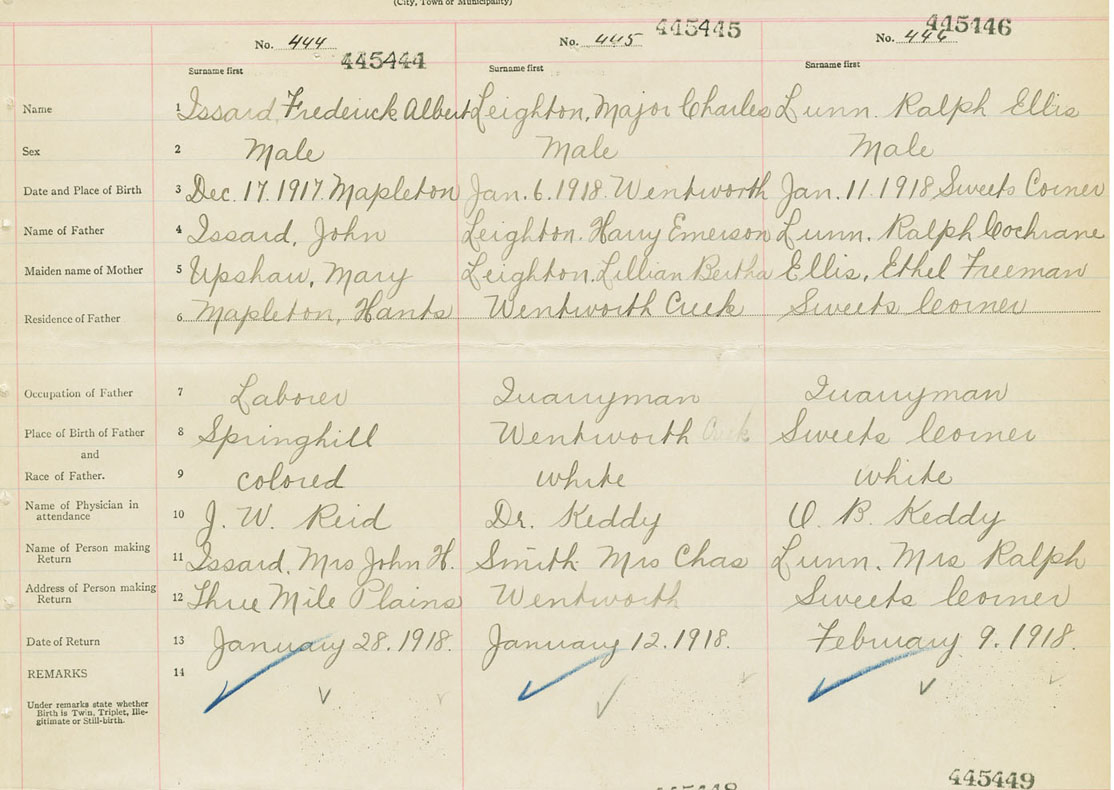 (City, Town or Municipality)
No. 444 445444 No. 445 445445 No. 446 445446
Surname first Surname first Surname first
Name 1 Issard, Frederick Albert Leighton, Major Charles Lunn. Ralph Ellis
Sex 2 Male Male Male
Date and Place of Birth 3 Dec. 17. 1917. Mapleton Jan. 6. 1918. Wentworth Jan. 11. 1918 Sweets Corner
Name of Father 4 Issard, John Leighton. Harry Emerson Lunn. Ralph Cochrane
Maiden name of Mother 5 Upshaw, Mary Leighton. Lillian Bertha Ellis, Ethel Freeman
Residence of Father 6 Mapleton, Hants Wentworth Creek Sweets Corner
Occupation of Father 7 Laborer Quarryman Quarryman
Place of Birth of Father 8 Springhill Wentworth Creek Sweets Corner
and
Race of Father. 9 colored white white
Name of Physician in
attendance 10 J. W. Reid Dr. Keddy O. B. Keddy
Name of Person making
Return 11 Issard, Mrs John H. Smith Mrs Chas Lunn, Mrs Ralph
Address of Person making
Return 12 Three Mile Plains Wentworth Sweets Corner
Date of Return 13 January 28. 1918. January 12. 1918. February 9. 1918.
REMARKS 14
Under remarks state whether
Birth is Twin, Triplet, Ille-
gitimate or Still-birth.
445449